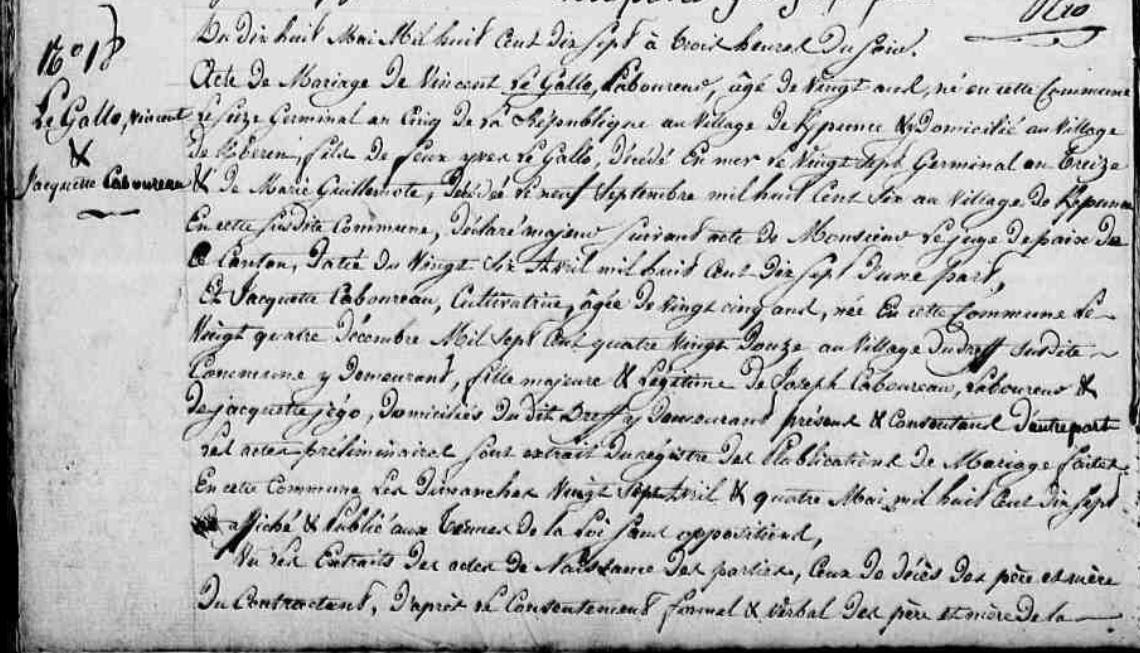 N° 18
Le Gallo, vincent
&
Jacquette Caboureau
Du dix huit Mai Mil huit Cent dix sept à trois heures du Soir.
Acte de Mariage de Vincent Le Gallo, Laboureur, âgé de Vingt ans, né en cette Commune
le seize Germinal an Cinq de la République au Village de & domicilié au Village
de fils de feux yves Le Gallo, décédé En mer le Vingt sept Germinal an treize
& de Marie Guillemote, décédée le neuf Septembre mil huit Cent Six au Village de
En cette susdite Commune, déclaré majeur suivant acte de Monsieur Le juge de paix de
Ce Canton, Daté du Vingt Six Avril mil huit Cent dix sept d'une part,
Et Jacquette Caboureau, Cultivatrice, âgée de vingt cinq ans, née En cette Commune le
Vingt quatre Décembre Mil Sept Cent quatre Vingt Douze au Village du Dreff susdite
Commune y Demeurant, fille majeure & Légitime de Joseph Caboureau, Laboureur &
de jacquette jégo, Domiciliés du dit Dreff y Demeurans présens & Consentans d'autre part
Les actes préliminaires sont extrait du régistre des Publications de Mariage faites
En cette Commune Les dimanches Vingt Sept Avril & quatre Mai mil huit Cent dix sept
affiché & Publié aux termes de la Loi sans oppositions,
Vu les Extraits des actes de Naissance des parties, Ceux de décès des père et mère
du Contractant, D'après le Consentement formel & Verbal des père et mère de la